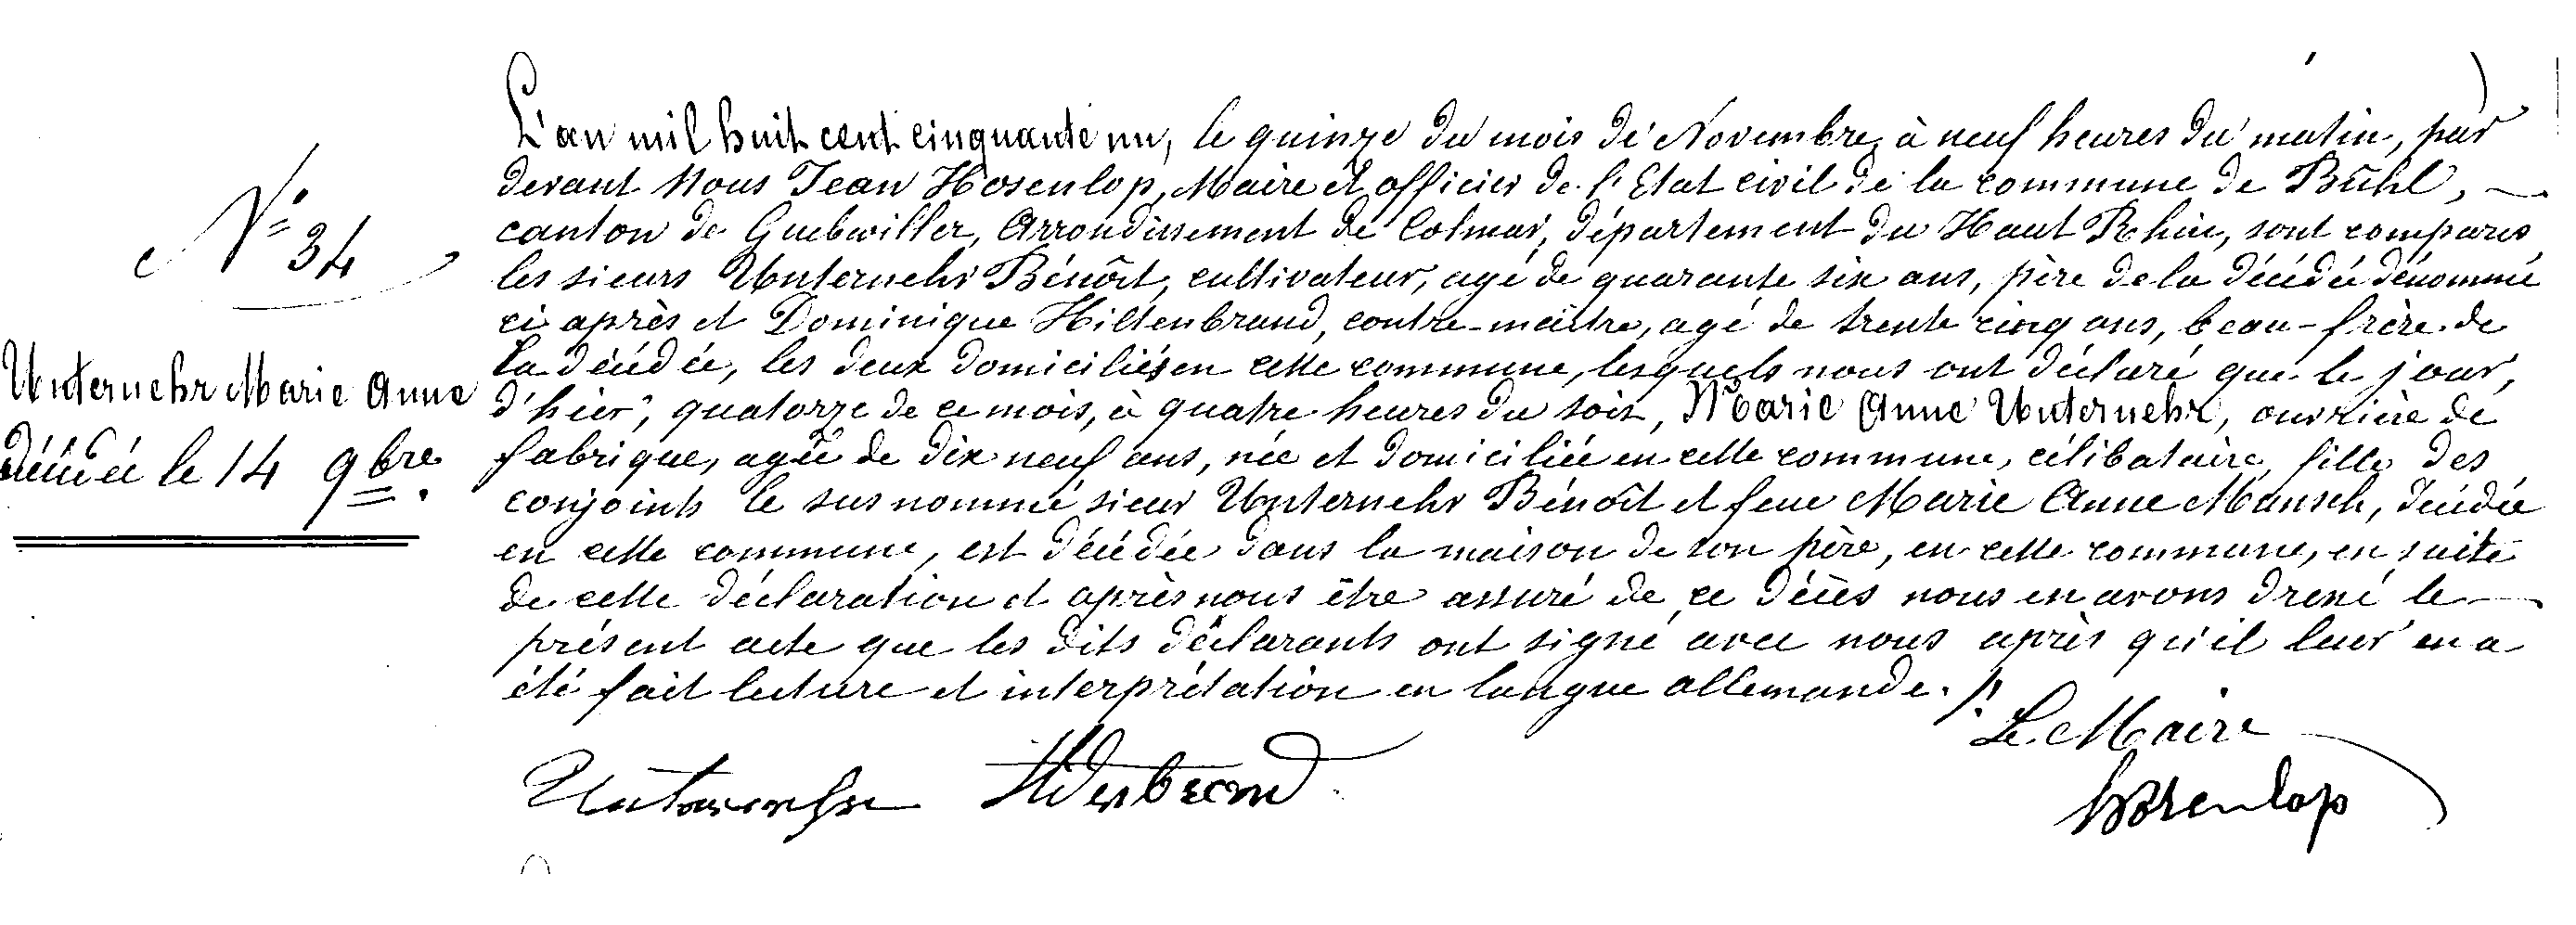 N° 34
Unternehr Marie Anne
décédée le 14 9bre.
L'an mil huit cent cinquante un, le quinze du mois de Novembre, à neuf heures du matin, par
devant Nous Jean Hosenlop, Maire et officier de l'Etat civil de la commune de Bühl,
canton de Guebwiller, Arrondissement de Colmar, département du Haut Rhin, sont comparus
les sieurs Unternehr Bénoît, cultivateur, agé de quarante six ans, père de la décédée dénommée
ci après et Dominique Hiltenbrand, contre-maitre, agé de trente cinq ans, beau-frère de
la décédée, les deux domiciliés en cette commune, lesquels nous ont déclaré que le jour
d'hier, quatorze de ce mois, à quatre heures du soir, Marie Anne Unternehr, ouvrière de
fabrique, agée de dix neuf ans, née et domiciliée en cette commune, célibataire, fille des
conjoints le sus nommé sieur Unternehr Bénoît et feue Marie Anne Mansch, décédée
en cette commune, est décédée dans la maison de son père, en cette commune, en suite
de cette déclaration et après nous être assuré de ce décès nous en avons dressé le
présent acte que les dits déclarants ont signé avec nous après qu'il leur en a
été fait lecture et interprétation en langue allemande.
Le Maire
Unternehr Hiltenbrand Hosenlop